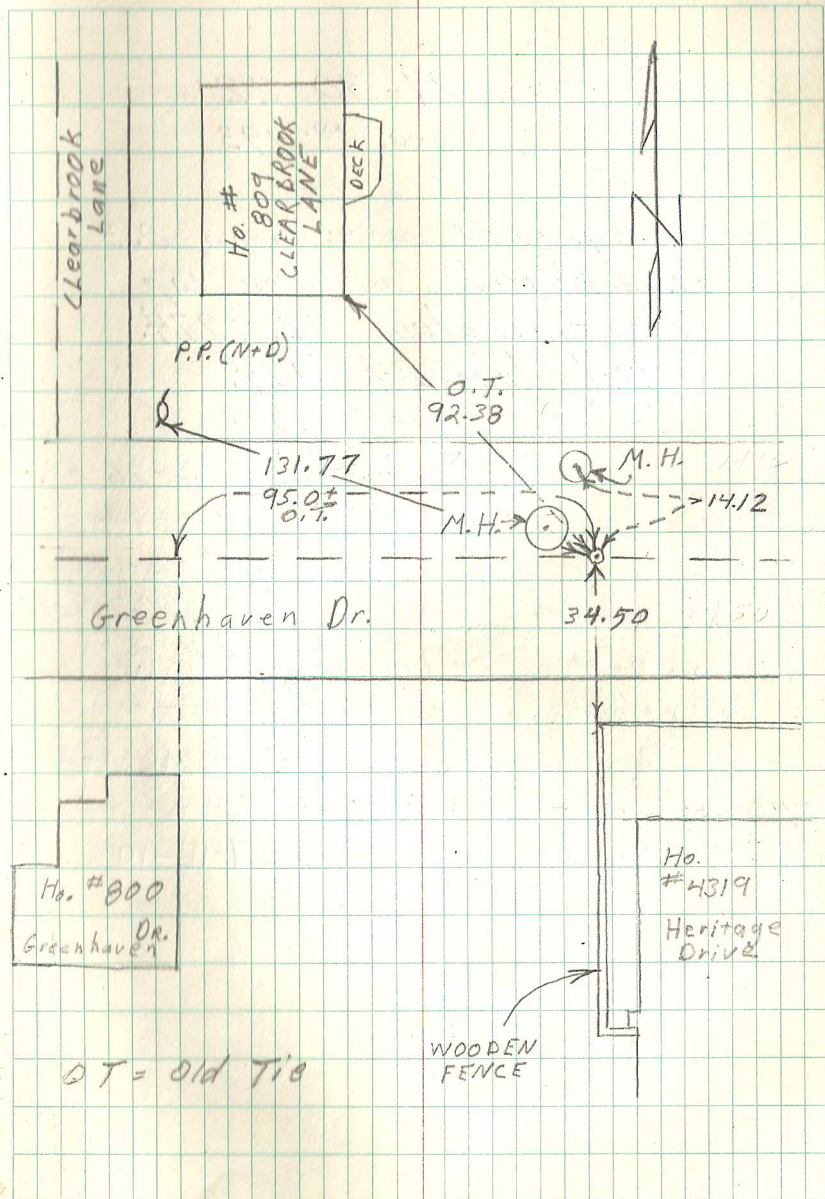 Clearbrook
Lane
Ho. #
809
CLEARBROOK
LANE
DECK
N
P.P. (N+D)
O.T.
92.38
131.77
95.0±
O.T.
M.H.
M.H.
14.12
Greenhaven Dr.
34.50
Ho. #800
Greenhaven DR.
Ho.
#4319
Heritage
Drive
WOODEN
FENCE
OT = Old Tie